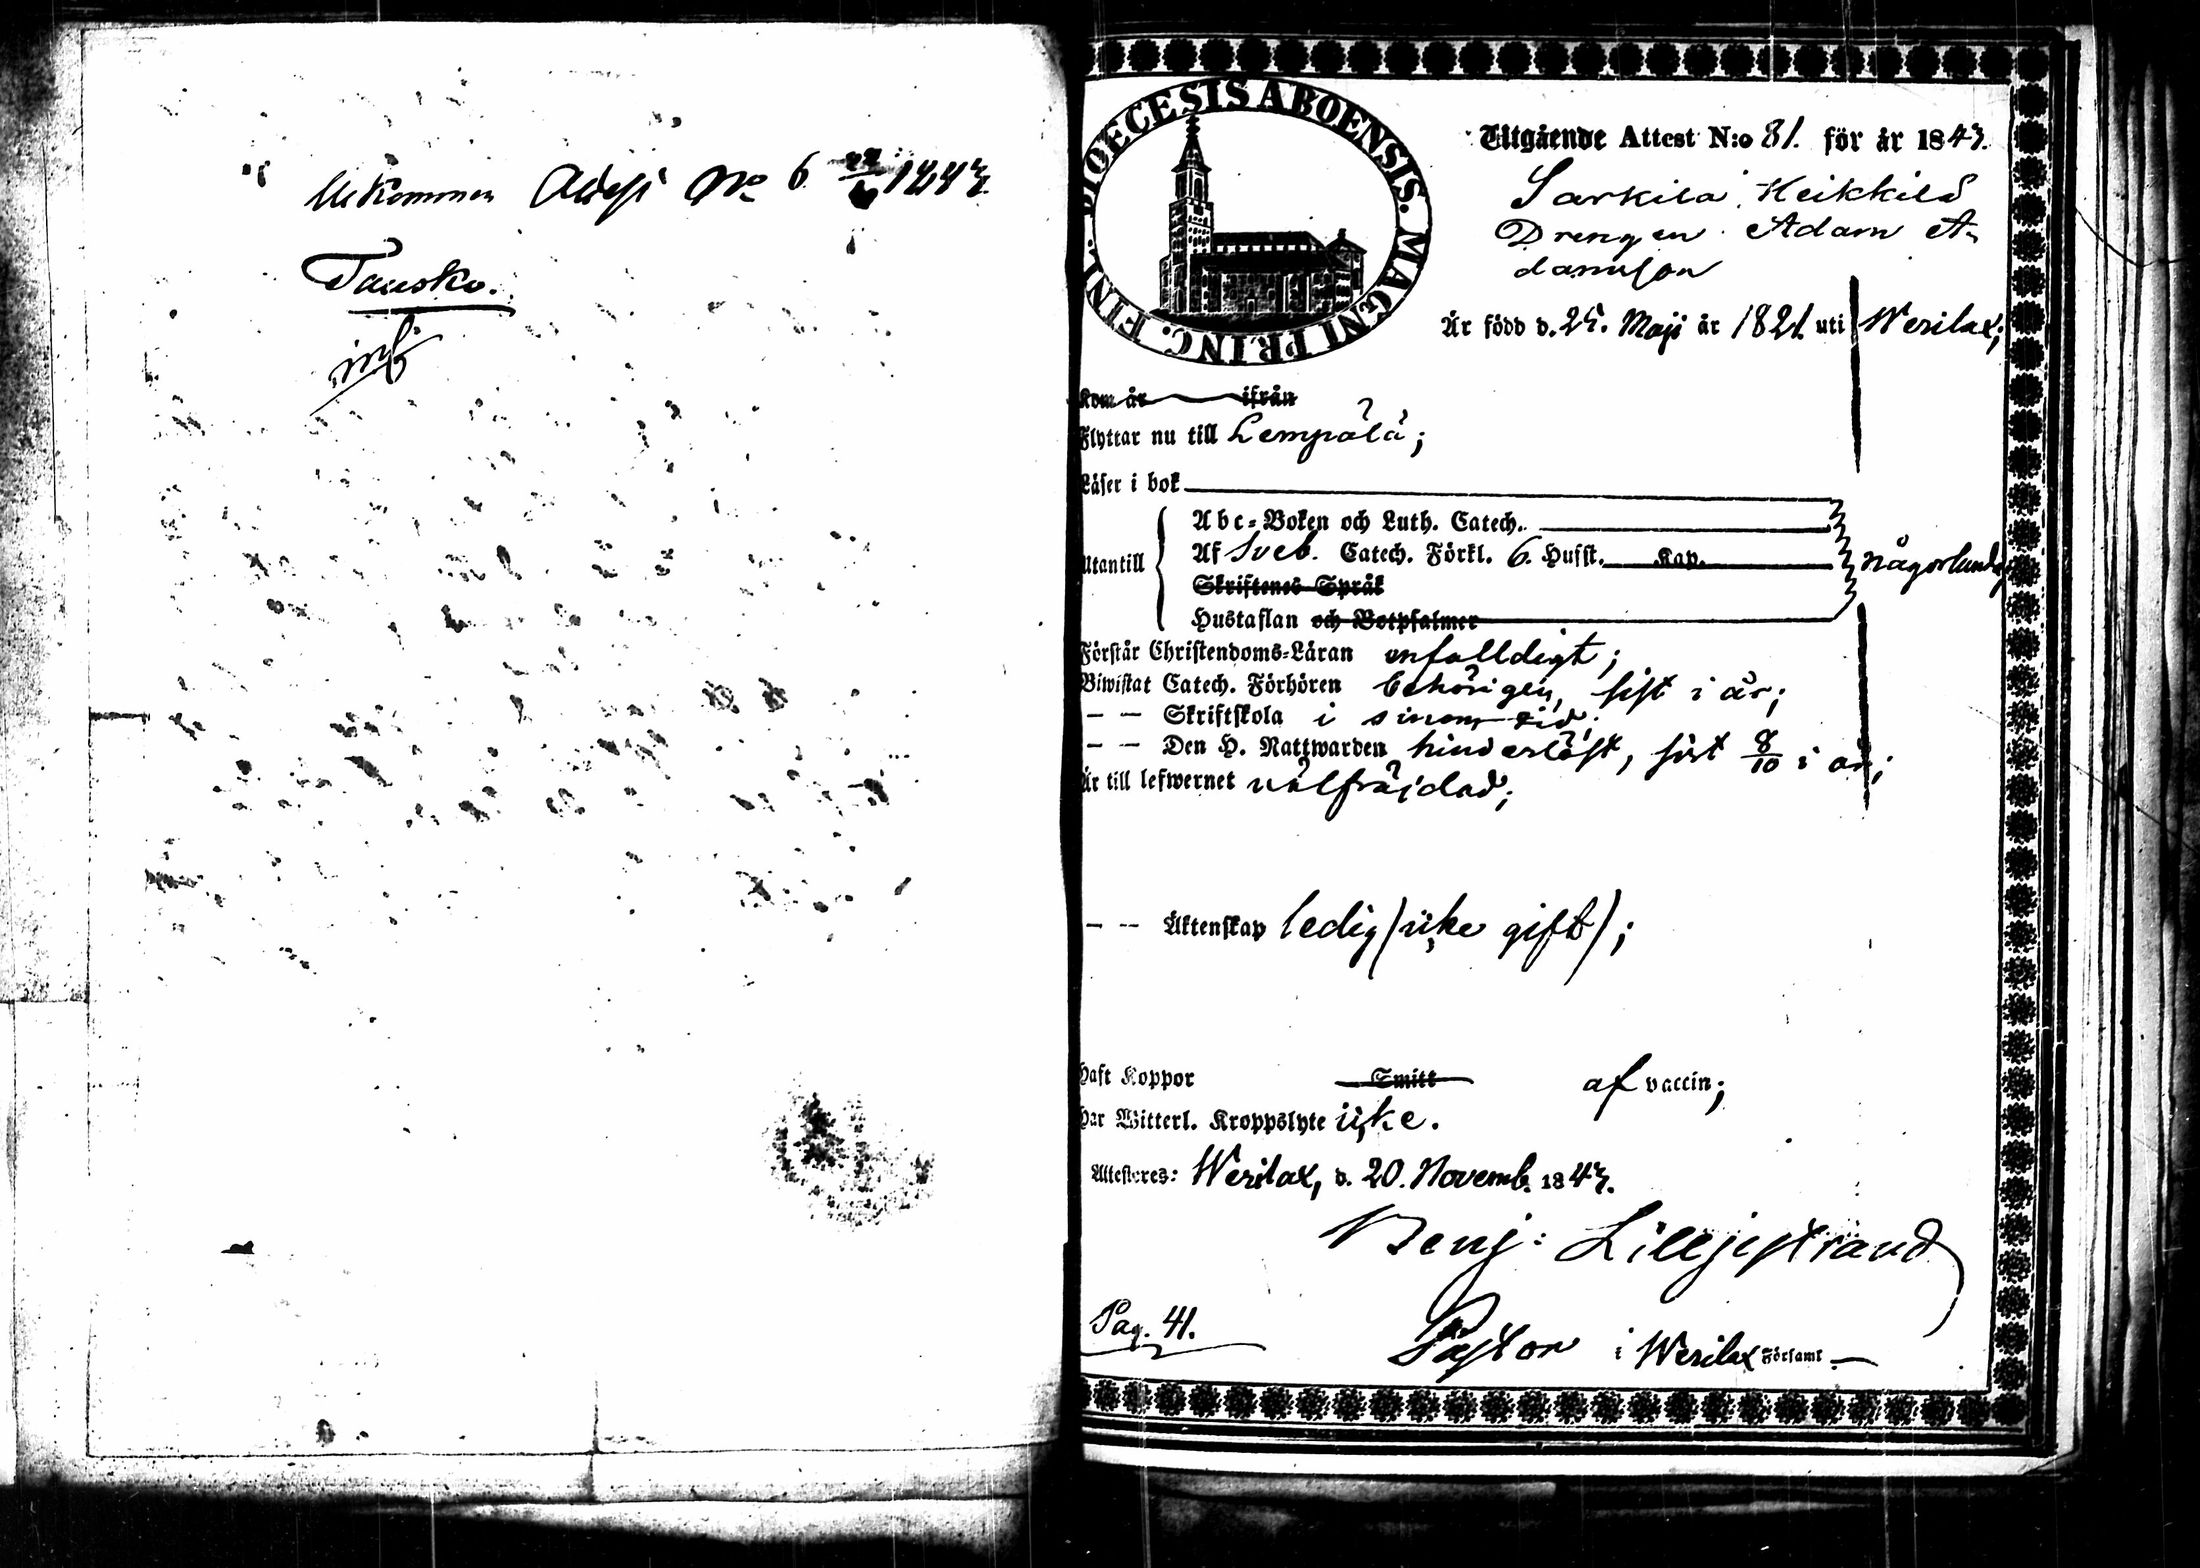 Attest No 6
Tausko.
inf.
DIOECESIS ABOENSIS. MAGNI PRINC. FINL.
Utgående Attest N:o 81. för år 1843.
Sarkila Heikkilä
Drengen Adam A-
damsson
Är född d. 25. Maji år 1821. uti Wesilax;
Kom år ifrån
Flyttar nu till Lempälä;
Läser i bok
Utantill
Abc-Boken och Luth. Catech.
Af Sveb. Catech. Förkl. 6. Hufst. Kap. någorlunda;
Skriftenes Språk
Hustaflan och Botpsalmer
Förstår Christendoms-Läran enfalldigt;
Biwistat Catech. Förhören behörigen, sist i år;
— — Skriftskola i sinom tid.
— — Den H. Nattwarden hinderlöst, sist 8/10 i år;
Är till lefwernet välfräjdad;
— — Äktenskap ledig (icke gift);
Haft Koppor Smitt af vaccin;
Har Witterl. Kroppslyte icke.
Attesteres: Wesilax, d. 20. Novemb. 1843.
Benj: Lilljestrand
Pag. 41.
Pastor i Wesilax Församl.